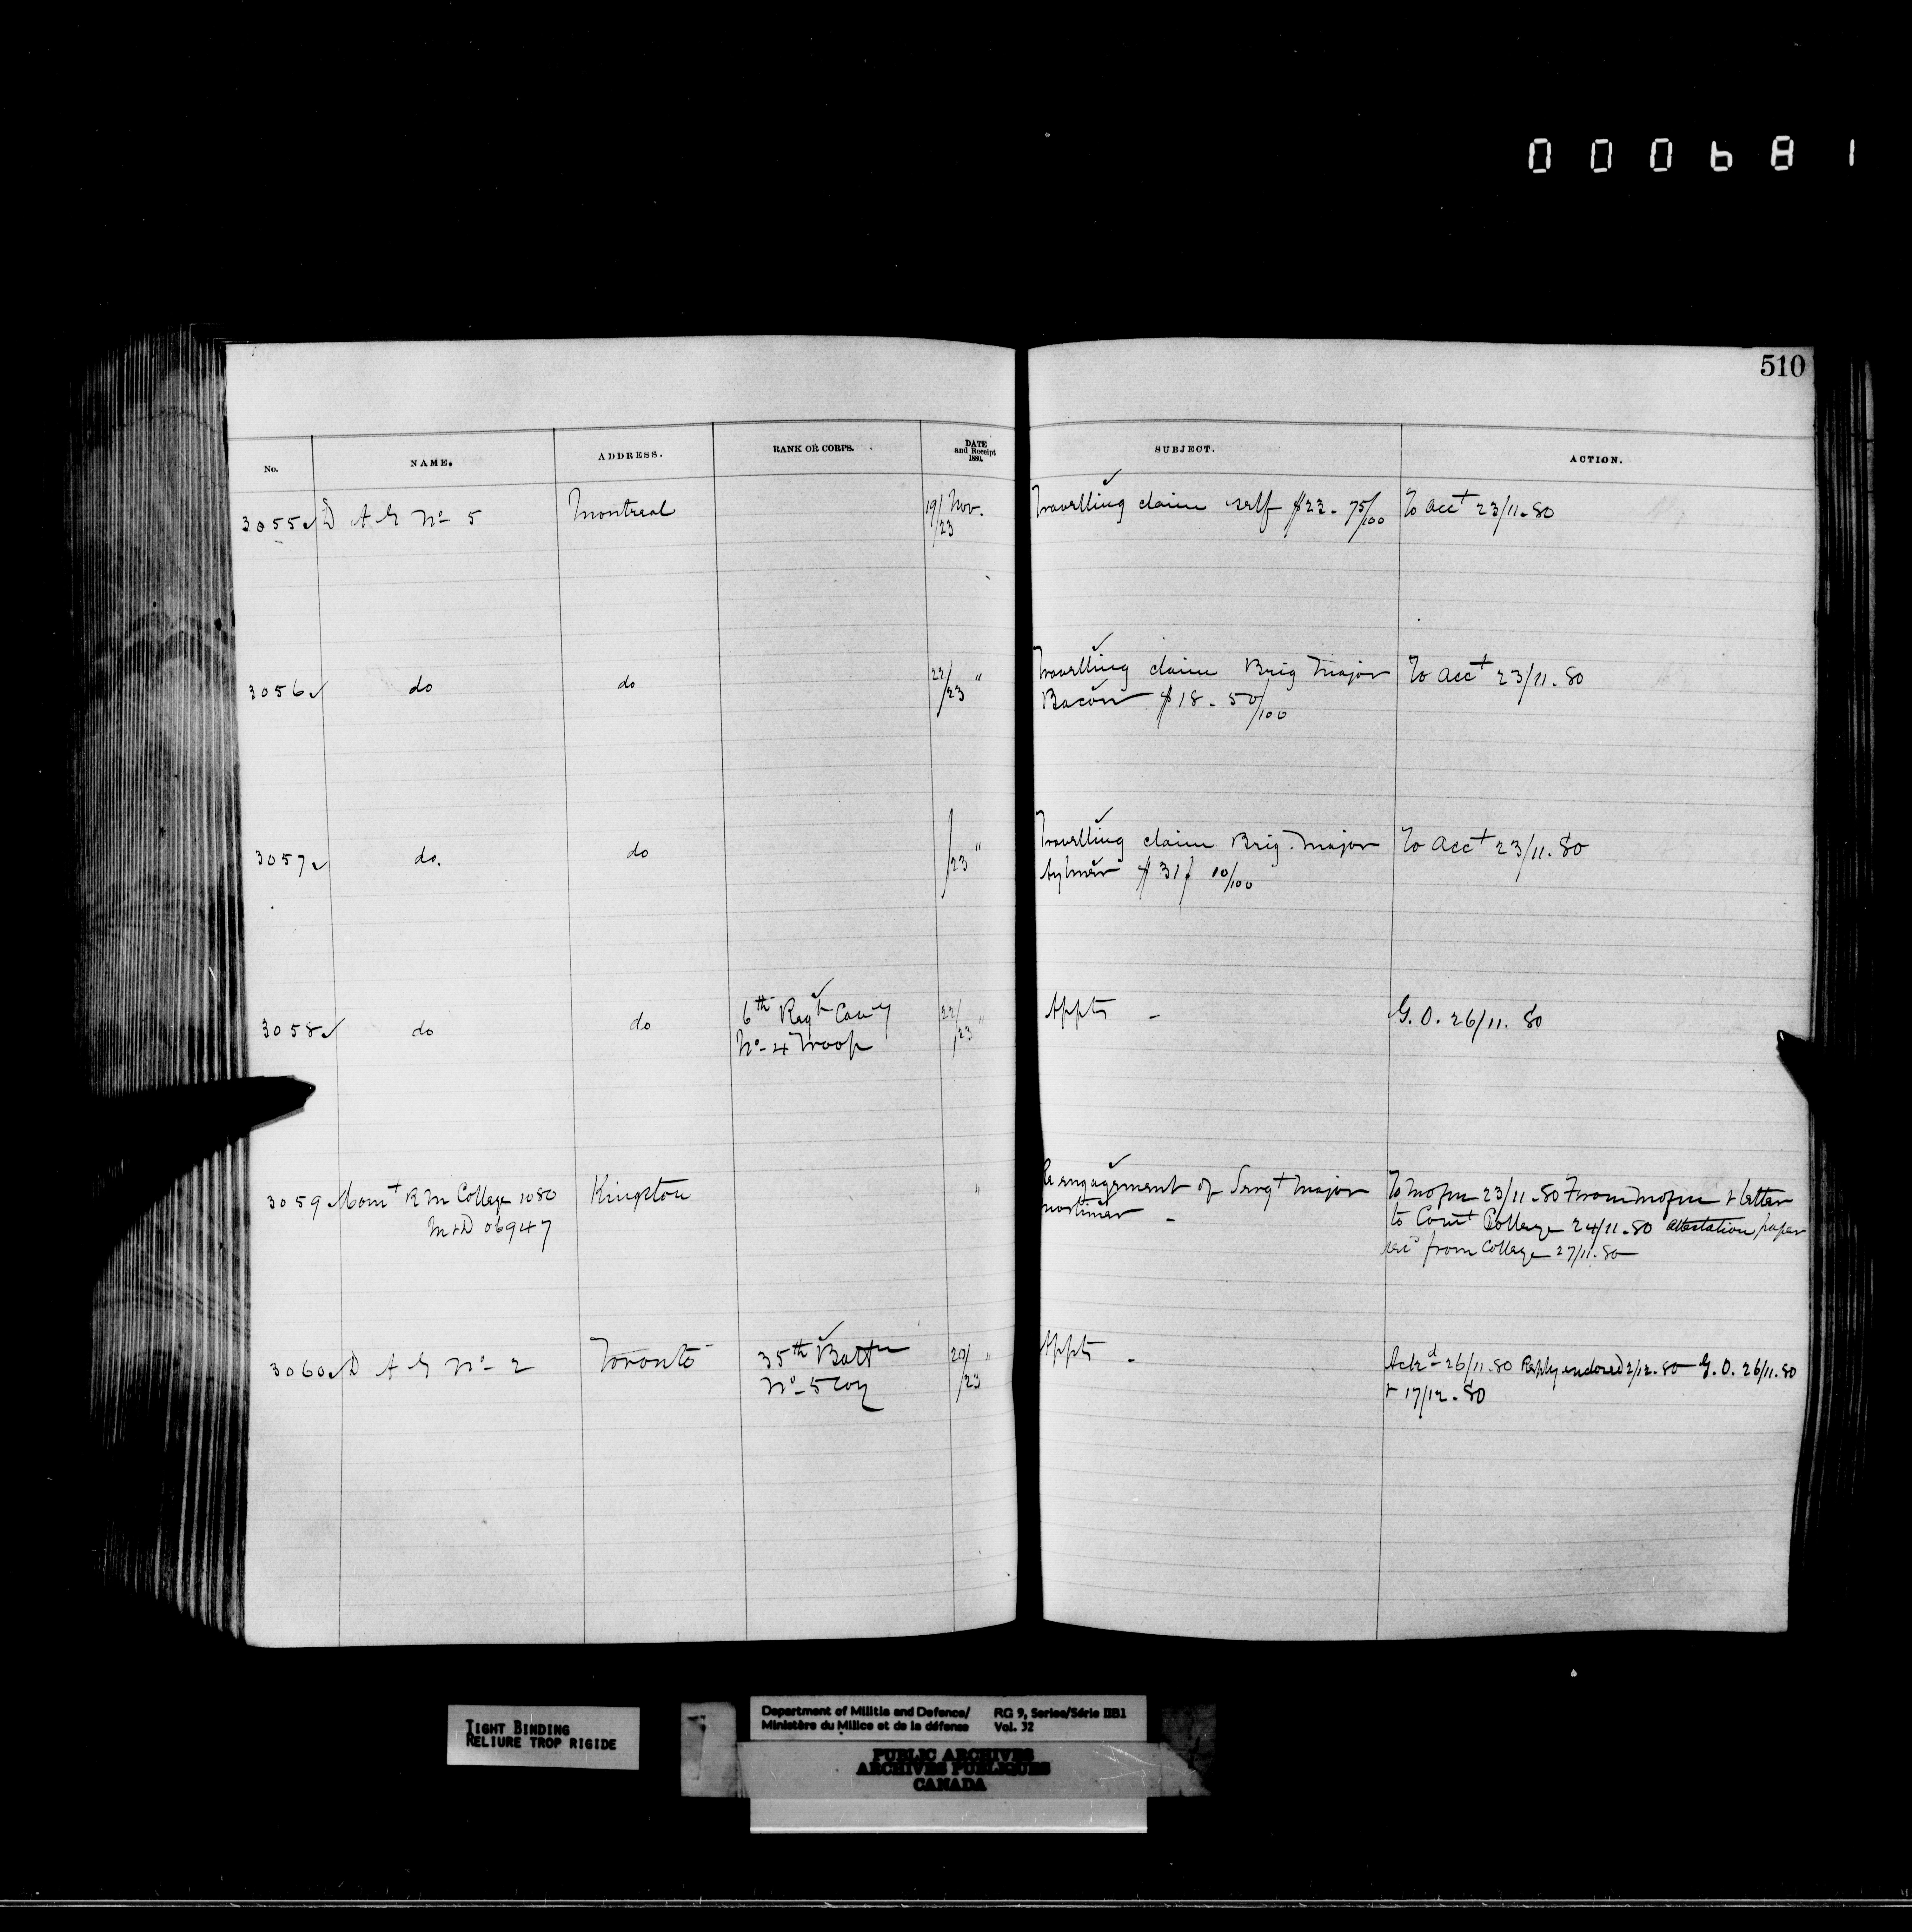 000681
510
No. NAME. ADDRESS. RANK OR CORPS. DATE and Receipt 1880. SUBJECT. ACTION.
3055 ✓ D A G No- 5 Montreal 19/23 Nov. Travelling claim self $22-75/100 To Acct 23/11-80
3056 ✓ do do 22/23 " Travelling claim Brig Major To Acct 23/11-80
Bacon $18-50/100
3057 ✓ do. do /23 " Travelling claim Brig. Major To Acct 23/11-80
Aylmer 10/100
3058 ✓ do do 6th Regt Cavy 22/23 " Appts - G.O. 26/11.80
No-4 Troop
3059 Comt R M College 1080 Kingston " Re engagement of Sergt Major To 23/11-80 From & letter
M&D 06947 Mortimer - to Comt College 24/11-80 attestation paper
recd from College 27/11-80
3060 ✓ D A G No- 2 Toronto 35th Battn 20/23 " Appts - Ackd 26/11.80 Reply endored 2/12-80 - G.O. 26/11.80
No-5 Coy & 17/12-80
TIGHT BINDING
RELIURE TROP RIGIDE
Department of Militia and Defence/ RG 9, Series/Série IIB1
Ministère du Milice et de la défense Vol. 32
PUBLIC ARCHIVES
ARCHIVES PUBLIQUES
CANADA